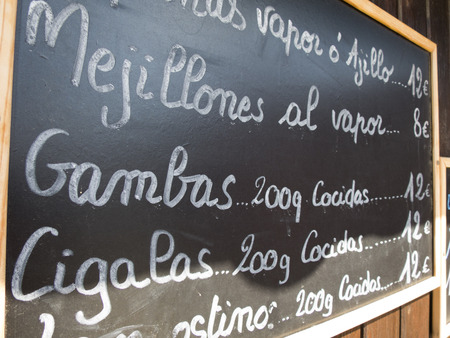 vapor ó Ajillo....12€
Mejillones al vapor... 8€
Gambas...200g Cocidas........12€
Cigalas...200g Cocidas........12€
200g Cocidas....12€